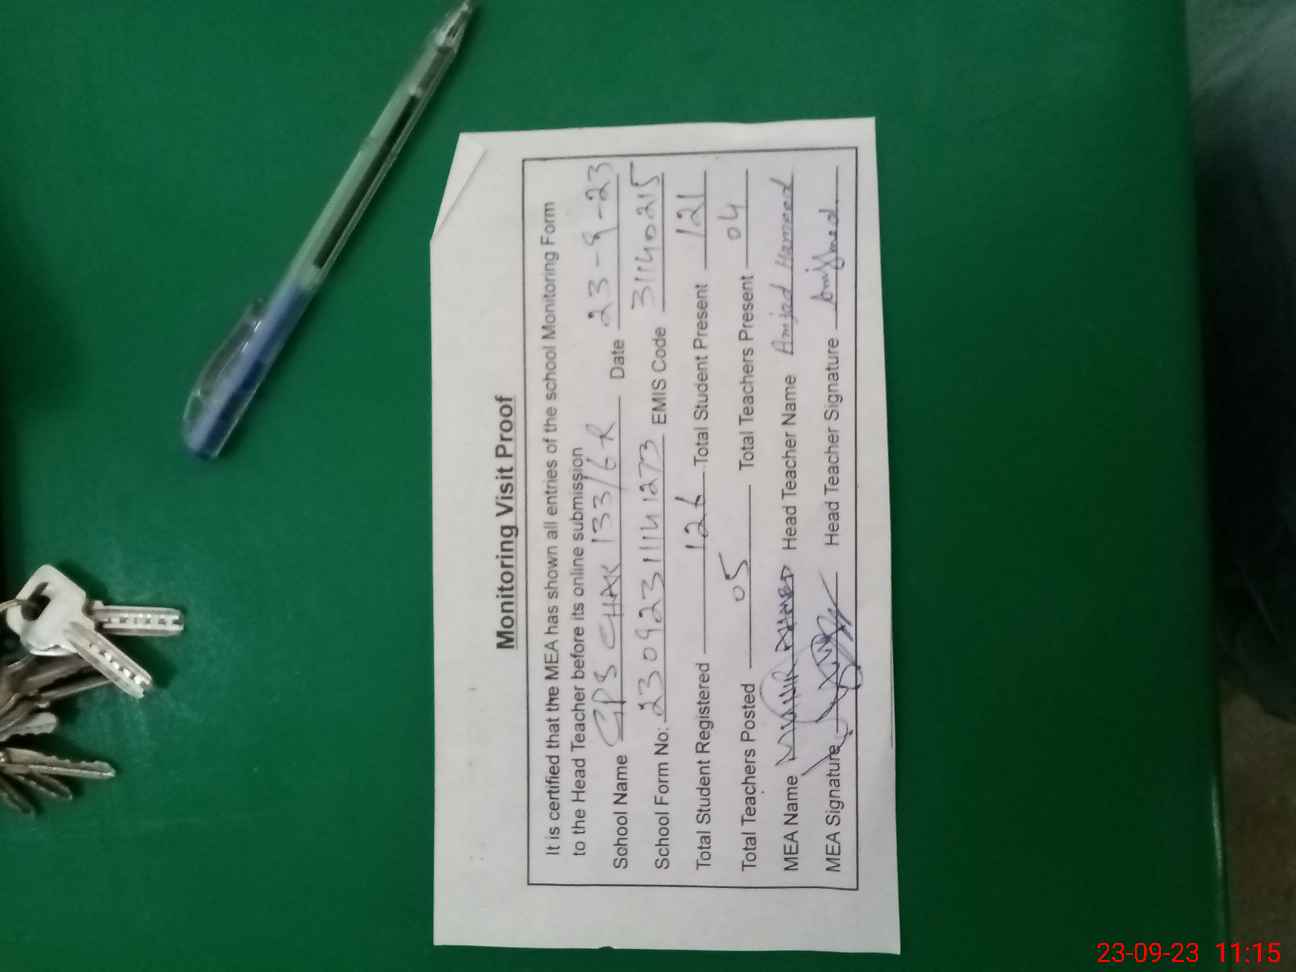 Monitoring Visit Proof
It is certified that the MEA has shown all entries of the school Monitoring Form
to the Head Teacher before its online submission
School Name GPS CHAK 133/6R Date 23-9-23
School Form No: 23092311141273 EMIS Code 31140215
Total Student Registered 126 Total Student Present 121
Total Teachers Posted 05 Total Teachers Present 04
MEA Name MUNIR AHMED Head Teacher Name Amjad Hameed
MEA Signature Head Teacher Signature
23-09-23 11:15